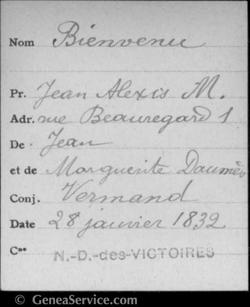 Nom Bienvenu
Pr. Jean Alexis M.
Adr. rue Beauregard 1
De Jean
et de Marguerite
Conj. Vermand
Date 28 janvier 1832
N.-D.-des-VICTOIRES
© GeneaService.com GeneaService.com